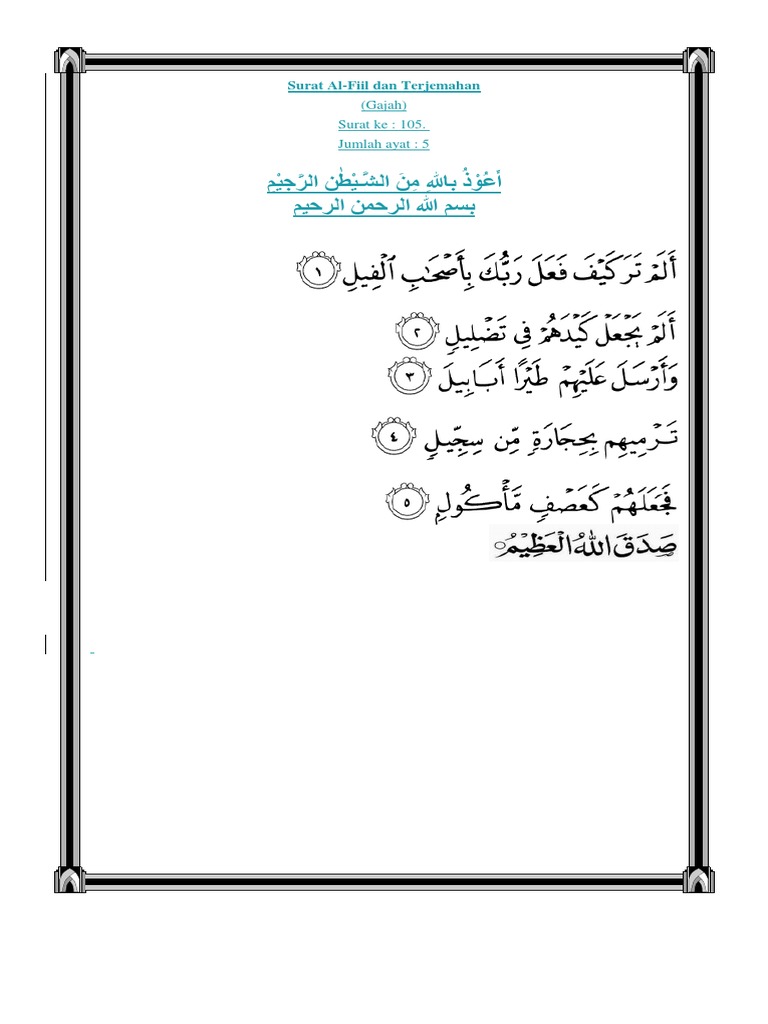 Surat Al-Fiil dan Terjemahan
(Gajah)
Surat ke : 105.
Jumlah ayat : 5
أَعُوْذُ بِاللهِ مِنَ الشَّيْطٰنِ الرَّجِيْمِ
بسم الله الرحمن الرحيم
أَلَمْ تَرَ كَيْفَ فَعَلَ رَبُّكَ بِأَصْحَٰبِ ٱلْفِيلِ ١
أَلَمْ يَجْعَلْ كَيْدَهُمْ فِي تَضْلِيلٍ ٢
وَأَرْسَلَ عَلَيْهِمْ طَيْرًا أَبَابِيلَ ٣
تَرْمِيهِم بِحِجَارَةٍ مِّن سِجِّيلٍ ٤
فَجَعَلَهُمْ كَعَصْفٍ مَّأْكُولٍ ٥
صَدَقَ اللهُ الْعَظِيْمُ